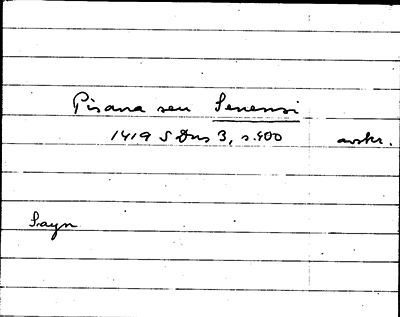 Pisana seu Senensi
1419 S Dns 3, s. 400 avskr.
Sayn